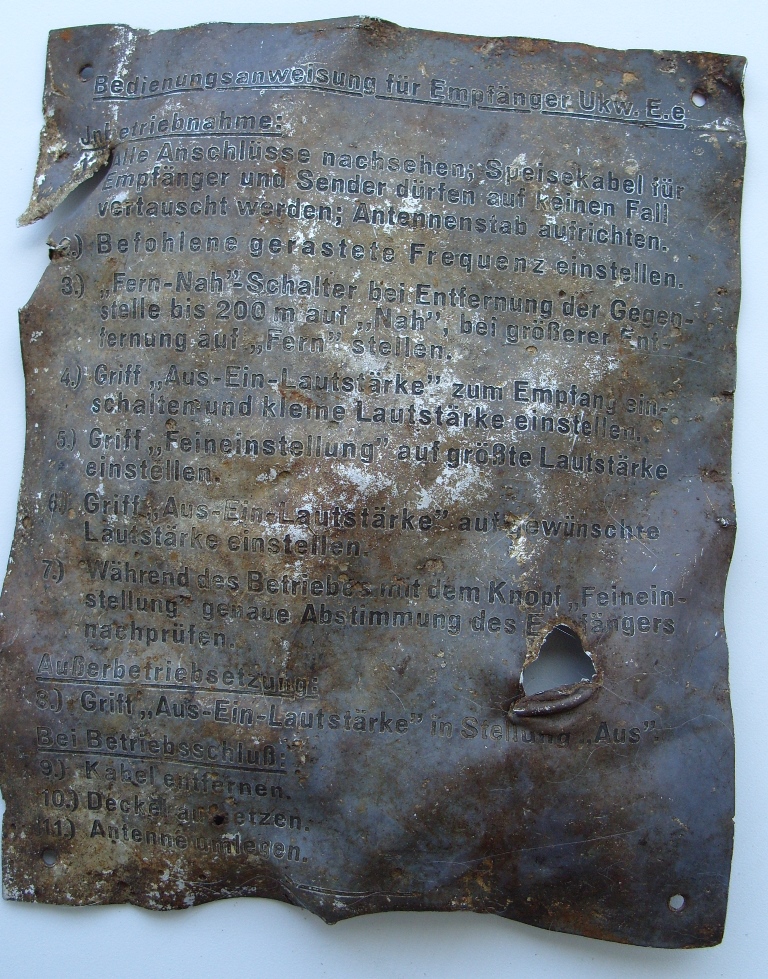 Bedienungsanweisung für Empfänger Ukw. E.e
etriebnahme:
Alle Anschlüsse nachsehen; Speisekabel für
Empfänger und Sender dürfen auf keinen Fall
vertauscht werden; Antennenstab aufrichten.
2.) Befohlene gerastete Frequenz einstellen.
3.) „Fern-Nah"-Schalter bei Entfernung der Gegen-
stelle bis 200 m auf „Nah", bei größerer Ent-
fernung auf „Fern" stellen.
4.) Griff „Aus-Ein-Lautstärke" zum Empfang ein-
schalten und kleine Lautstärke einstellen.
5.) Griff „Feineinstellung" auf größte Lautstärke
einstellen.
6.) Griff „Aus-Ein-Lautstärke" auf gewünschte
Lautstärke einstellen.
7.) Während des Betriebes mit dem Knopf „Feinein-
stellung" genaue Abstimmung des E fängers
nachprüfen.
Außerbetriebsetzung:
8.) Griff „Aus-Ein-Lautstärke" in Stellung „Aus".
Bei Betriebsschluß:
9.) Kabel entfernen.
10.) Deckel au setzen.
11.) Antenne umlegen.